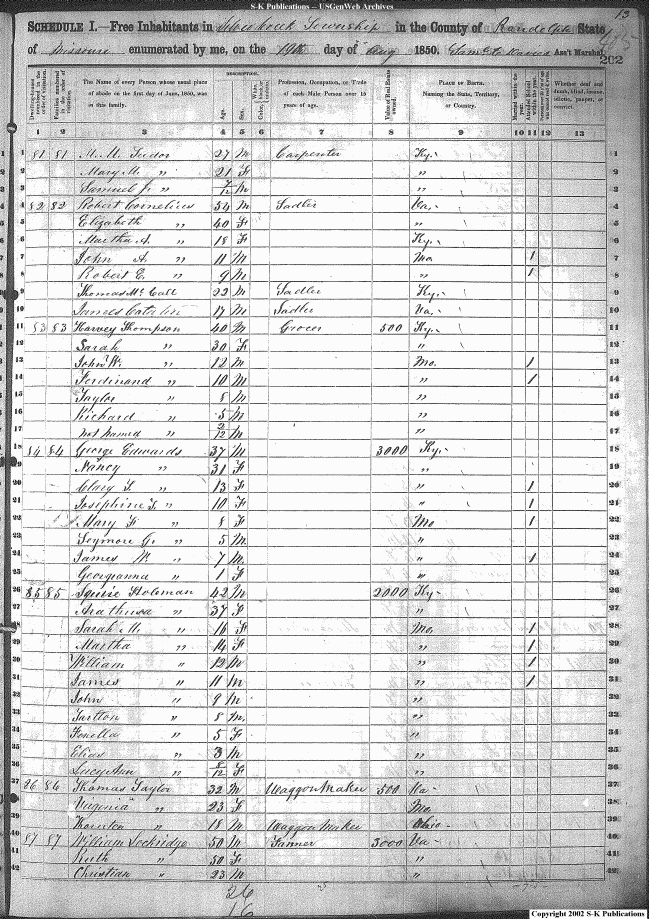 S-K Publications -- USGenWeb Archives
13
SCHEDULE I.—Free Inhabitants in Silver Creek Township in the County of Randolph State
of Missouri enumerated by me, on the 19th day of Aug 1850. Ass't Marshal.
202
Dwelling-houses numbered in the order of visitation. Families numbered in the order of visitation. The Name of every Person whose usual place of abode on the first day of June, 1850, was in this family. DESCRIPTION. Age. Sex. Profession, Occupation, or Trade of each Male Person over 15 years of age. Value of Real Estate owned. PLACE OF BIRTH. Naming the State, Territory, or Country. Married within the year. Attended School within the year. Whether deaf and dumb, blind, insane, idiotic, pauper, or convict.
1 2 3 4 5 6 7 8 9 10 11 12 13
1 81 81 M. M. Tudor 27 M Carpenter Ky. 1
2 Mary M. " 21 F " 2
3 Samuel J. " 7/12 M " 3
4 82 82 Robert Cornelius 54 M Sadler Va. 4
5 Elizabeth " 40 F " 5
6 Martha A. " 18 F Ky. 6
7 John A. " 11 M Mo 1 7
8 Robert E. " 9 M " 1 8
9 Thomas McCall 22 M Sadler Ky. 9
10 James 17 M Sadler Va. 10
11 83 83 Harvey Thompson 40 M Grocer 500 Ky. 11
12 Sarah " 30 F " 12
13 John W. " 12 M Mo. 1 13
14 Ferdinand " 10 M " 1 14
15 Taylor " 8 M " 15
16 Richard " 5 M " 16
17 not named " 2/12 M " 17
18 84 84 George Edwards 37 M 3000 Ky. 18
19 Nancy " 31 F " 19
20 Clary " 13 F " 1 20
21 Josephine " 10 F " 1 21
22 Mary F " 8 F Mo 1 22
23 Seymore G. " 5 M " 23
24 James W. " 7 M. " 1 24
25 Georgianna " 1 F " 25
26 85 85 Squire Holeman 42 M 2000 Ky 26
27 Arathusa " 37 F " 27
28 Sarah M. " 16 F Mo. 1 28
29 Martha " 14 F " 1 29
30 William " 12 M " 1 30
31 James " 11 M " 1 31
32 John " 9 M " 32
33 Tarlton " 8 M. " 33
34 Fenella " 5 F " 34
35 Elias " 3 M " 35
36 Lucy Ann " 8/12 F " 36
37 86 86 Thomas Taylor 32 M Waggon Maker 500 Va 37
38 Virginia " 23 F Mo. 38
39 Thornton " 18 M Waggon Maker Ohio 39
40 87 87 William Lockridge 50 M Farmer 3000 Va 40
41 Ruth " 50 F " 41
42 Christian " 23 M " 42
26
16
Copyright 2002 S-K Publications